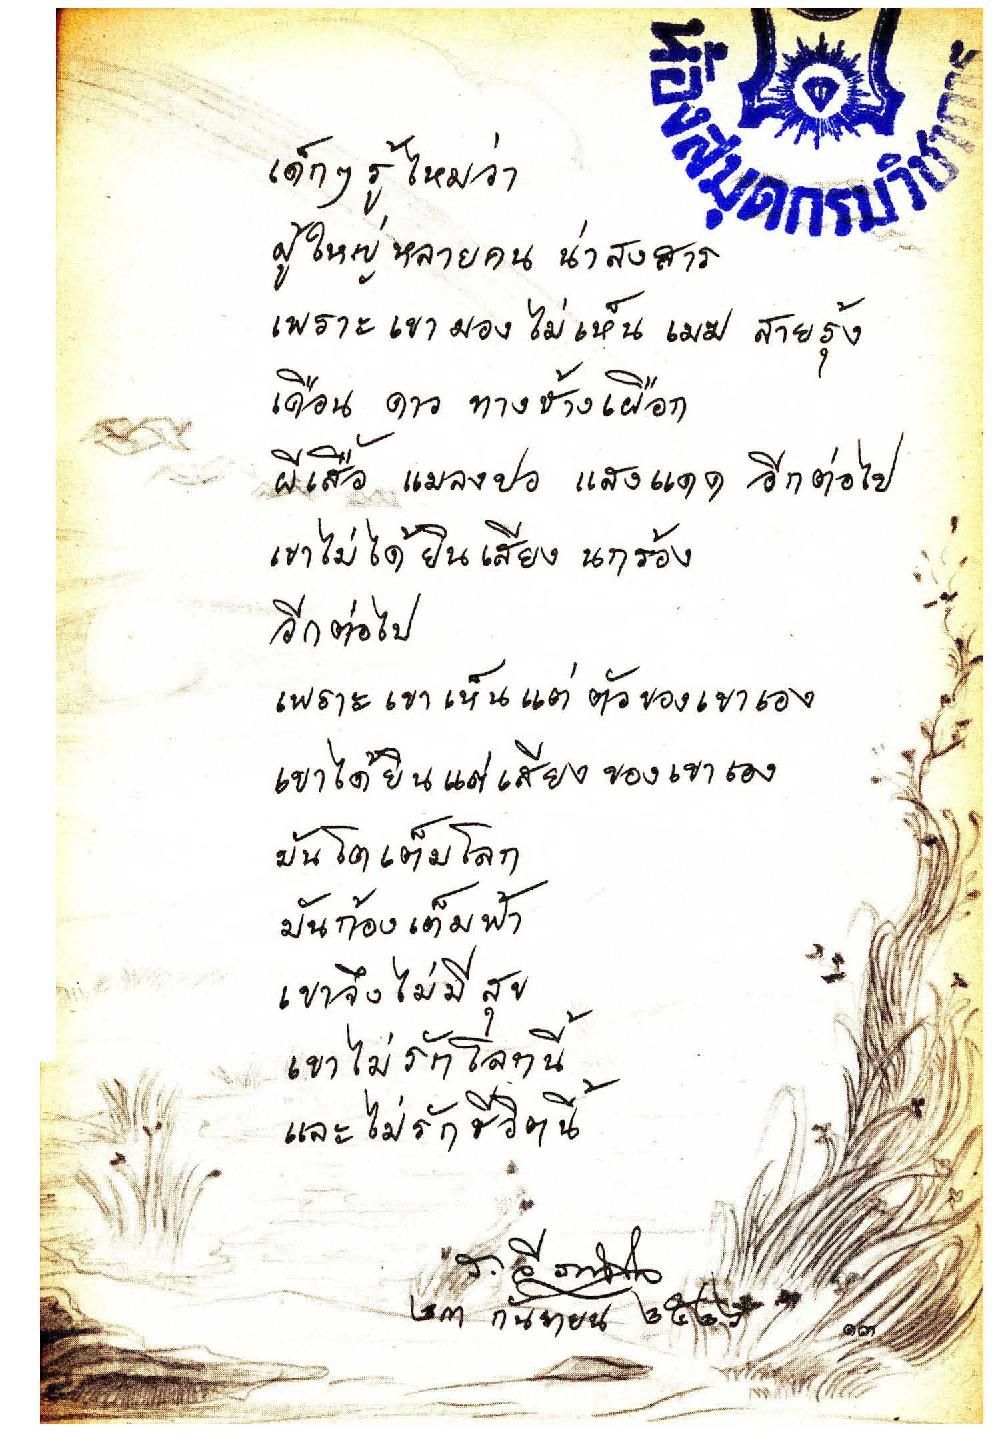 ห้องสมุดกรมวิชาการ
เด็กๆ รู้ไหมว่า
ผู้ใหญ่หลายคน น่าสงสาร
เพราะ เขามอง ไม่เห็น เมฆ สายรุ้ง
เดือน ดาว ทางช้างเผือก
ผีเสื้อ แมลงปอ แสงแดด อีกต่อไป
เขาไม่ได้ยินเสียง นกร้อง
อีกต่อไป
เพราะ เขา เห็นแต่ ตัวของเขาเอง
เขาได้ยินแต่เสียง ของเขาเอง
มันโตเต็มโลก
มันก้องเต็มฟ้า
เขาจึงไม่มี สุข
เขาไม่รักโลกนี้
และไม่รักชีวิตนี้
๒๓ กันยายน
๑๓